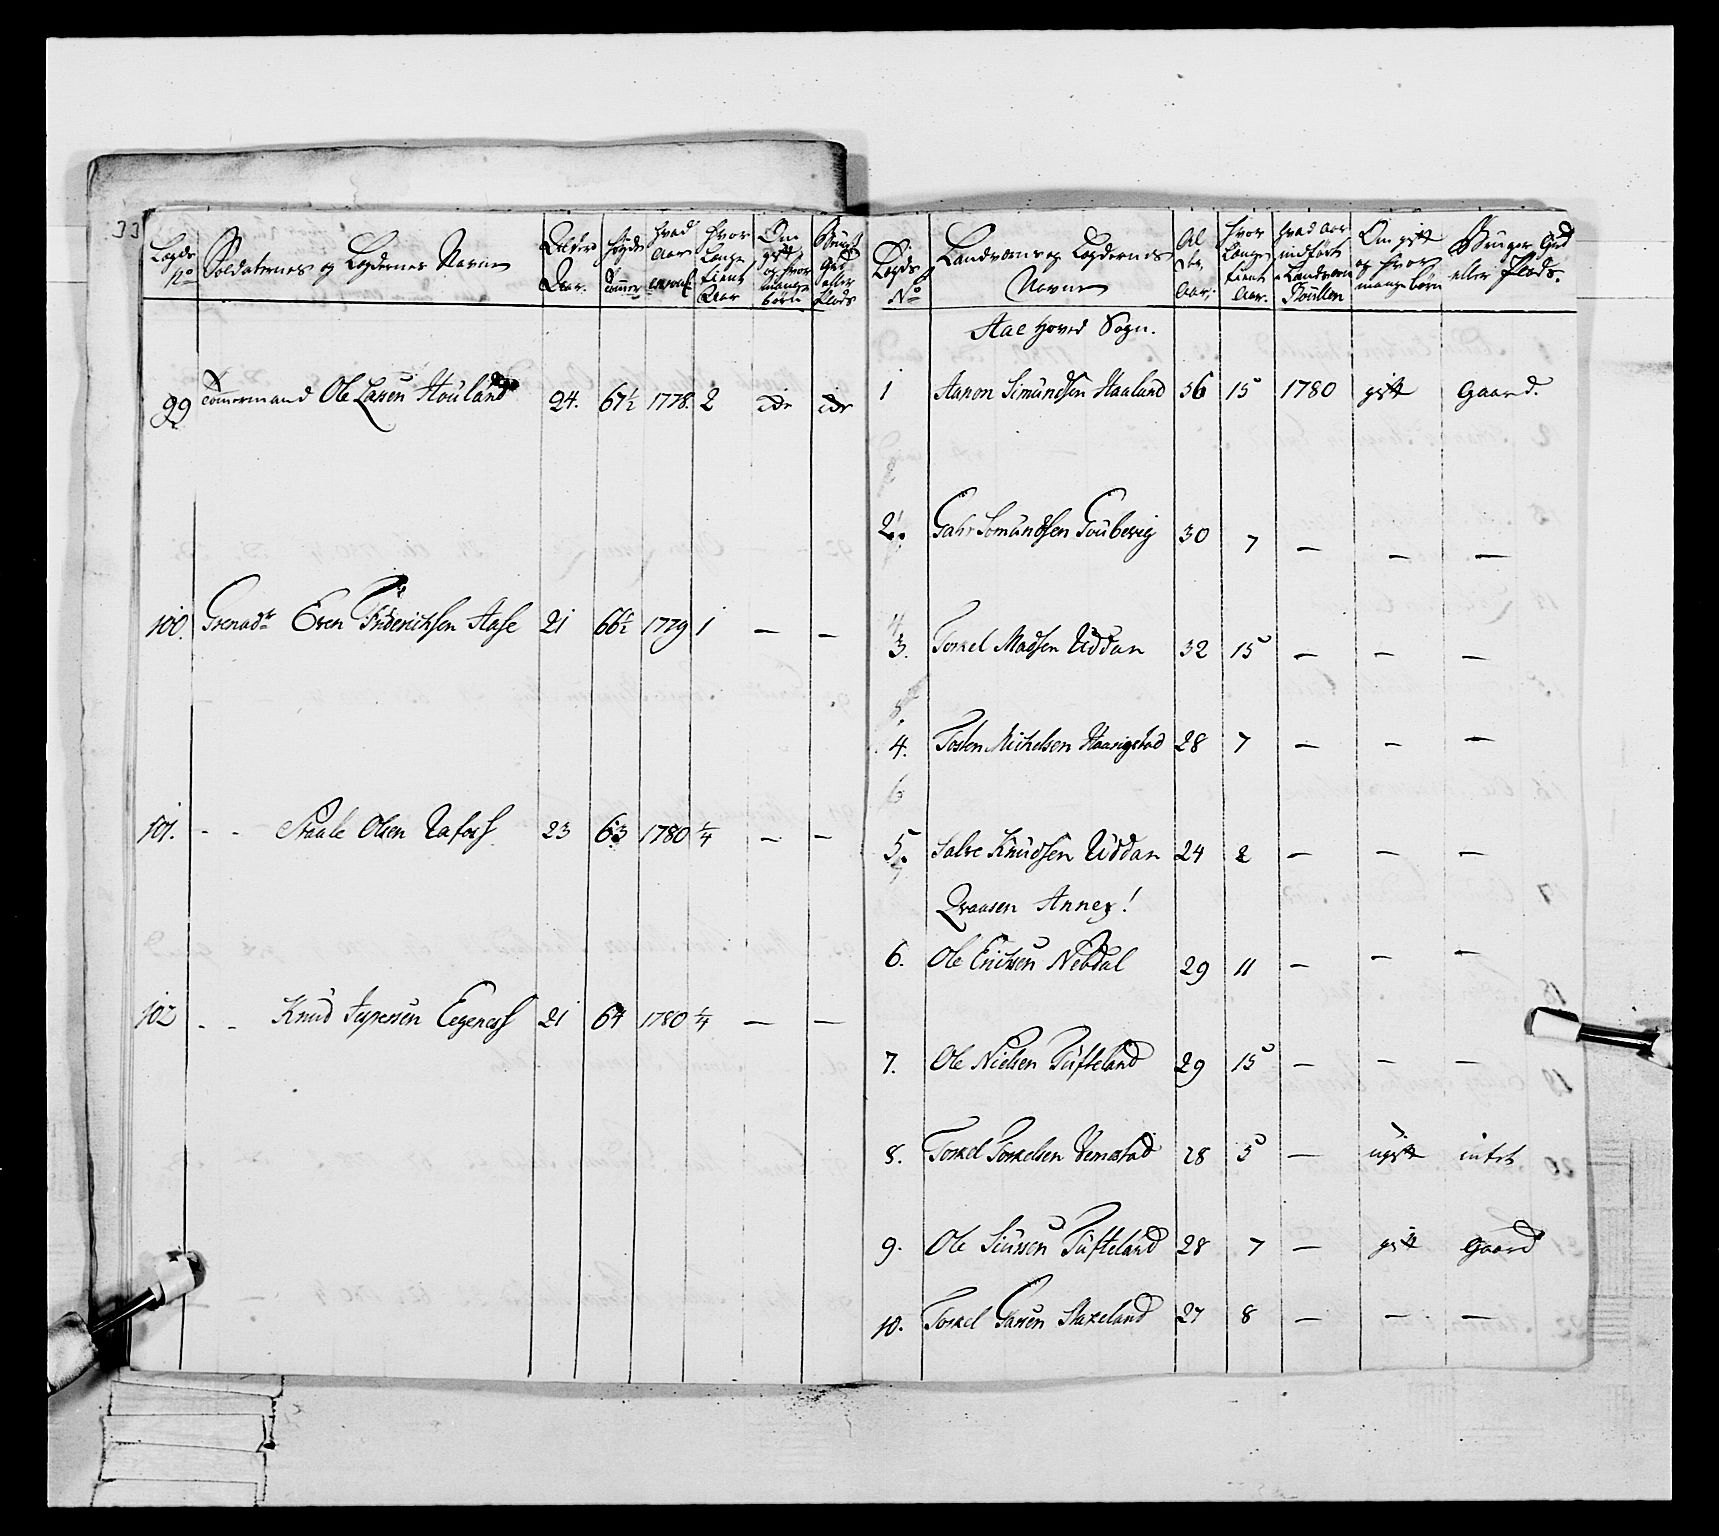 33
Legds No
Soldaternes og Legdernes Navne
Alder Aar
Høyde Tommer
hvad Aar enroul.
hvor Lange tient Aar
Om gift og hvor mange børn
Brugt Gd eller Plads
99 Tømermand Ole Lassen Houland 24. 67½ 1778. 2 dr dr
100. Grenadr Even Friderichsen Aase 21 66½ 1779 1 — —
101. - - Staale Olsen 23 63 1780 ¼ — —
102 - - Knud Jespersen Egenes 21 64 1780 ¼ — —
Legds No
Landværns og Legdernes Navne
Alder Aar.
hvor Lange tient Aar.
hvad Aar indført i Landværn Roullen
Om gift og hvor mange børn
Bruger Gd eller Plads.
Aae Hoved Sogn.
1 Aanon Simundsen Haaland 36 15 1780 gift Gaard.
2. Gahr Somundsen 30 7 — — —
3. Torkel Madsen Uddan 32 15 — — —
4. Tosten Michelsen Haarigstad 28 7 — — —
5. Salve Knudsen Uddan 24 2 — — —
Qvaasen Annex!
6. Ole Erichsen Nebdal 29 11 — — —
7. Ole Nielsen Tufteland 29 15 — — —
8. Torkel Torkelsen Vemestad 28 5 — ugift intet
9. Ole Siursen Tufteland 28 7 — gift Gaard
10. Torkel Larsen Stakeland 27 8 — — —